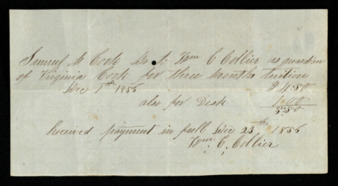 Samuel M Cook Dr. to Wm C Collier as guardian
of Virginia Cook for three months tuition
Dec 1st 1856 $ 4.50
also for Desk
5.50
Received payment in full Dec 25th 1856
Wm. C. Collier